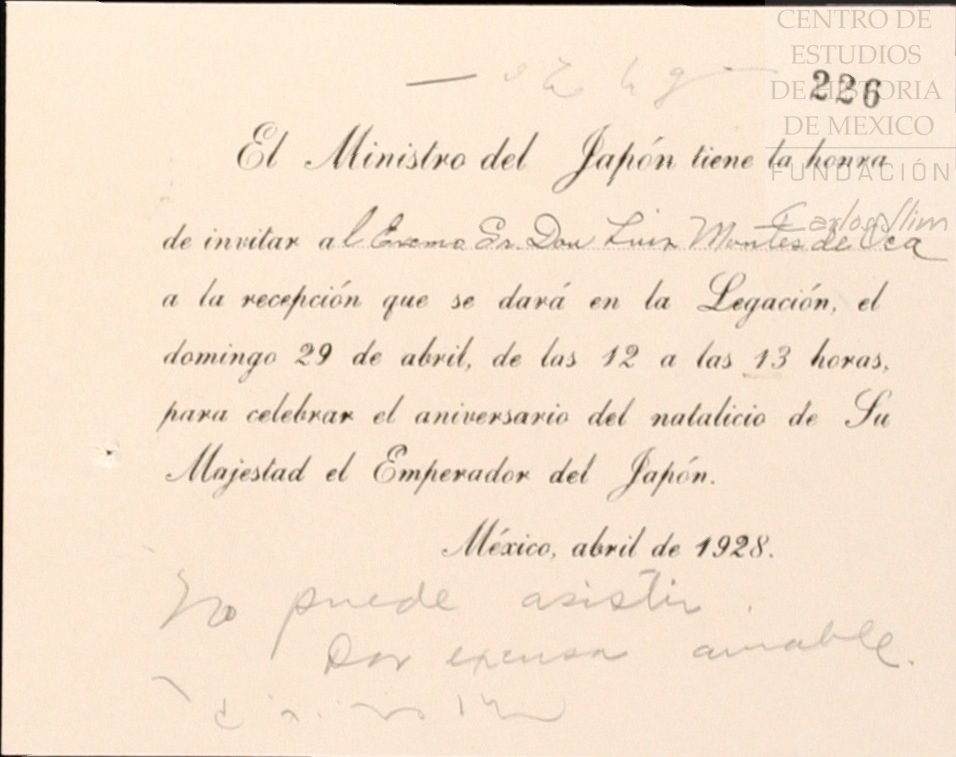 CENTRO DE
ESTUDIOS
DE HISTORIA
DE MEXICO
FUNDACIÓN
Carlos Slim
226
El Ministro del Japón tiene la honra
de invitar al Exmo Sr. Don Luis Montes de Oca
a la recepción que se dará en la Legación, el
domingo 29 de abril, de las 12 a las 13 horas,
para celebrar el aniversario del natalicio de Su
Majestad el Emperador del Japón.
México, abril de 1928.
No puede asistir.
Dar excusa amable.